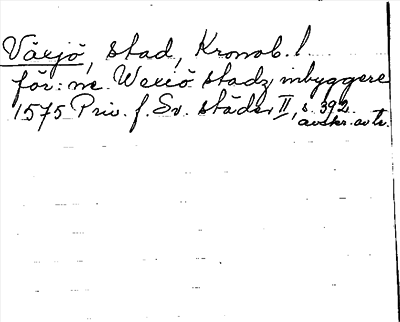 Växjö, stad, Kronob. l.
för: ne Wexiö stadz inbyggere
1575 Priv. f. Sv. städer II, s. 392
avskr. av tr.